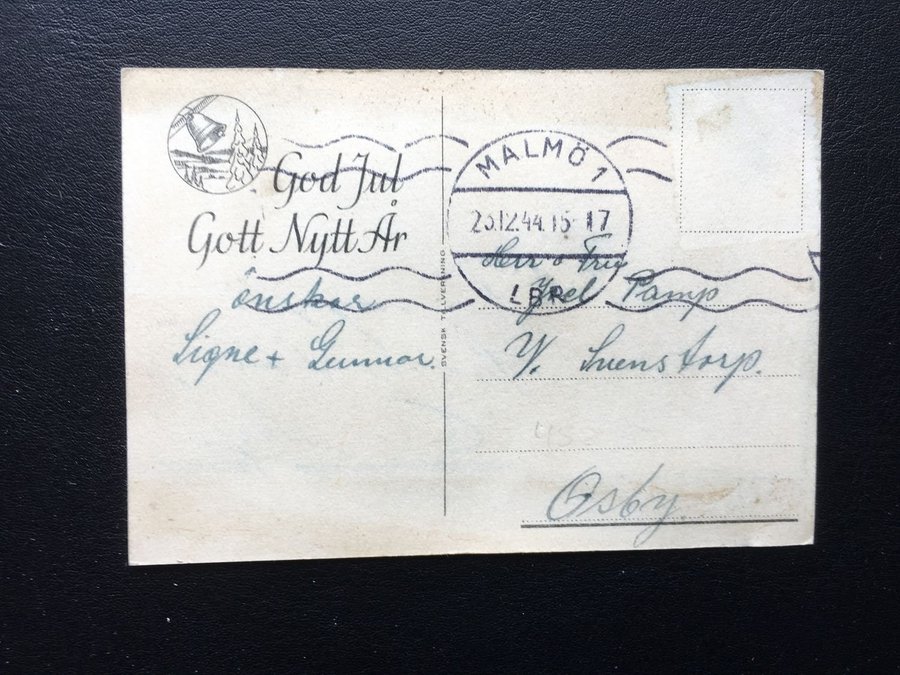 God Jul
Gott Nytt År
önskar
Signe + Gunnar.
SVENSK TILLVERKNING
MALMÖ 1
23.12.44.15-17
LBR
Herr o Fru
Axel Pamp
V. Svenstorp.
Osby.